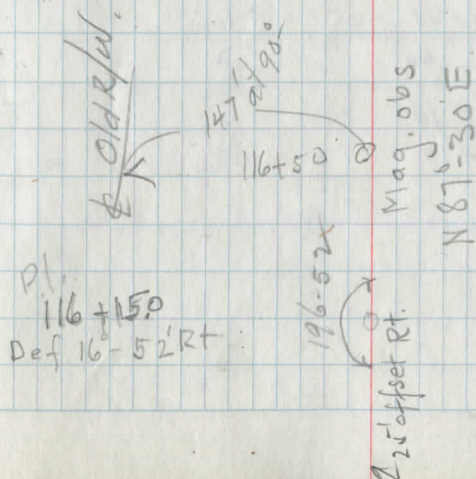 ℄ Old R/W.
147' at 90°
116+50
Mag. obs
N 87°-30'E
196-52
P.I.
116+15.0
Def 16°-52' Rt
25' offset Rt.